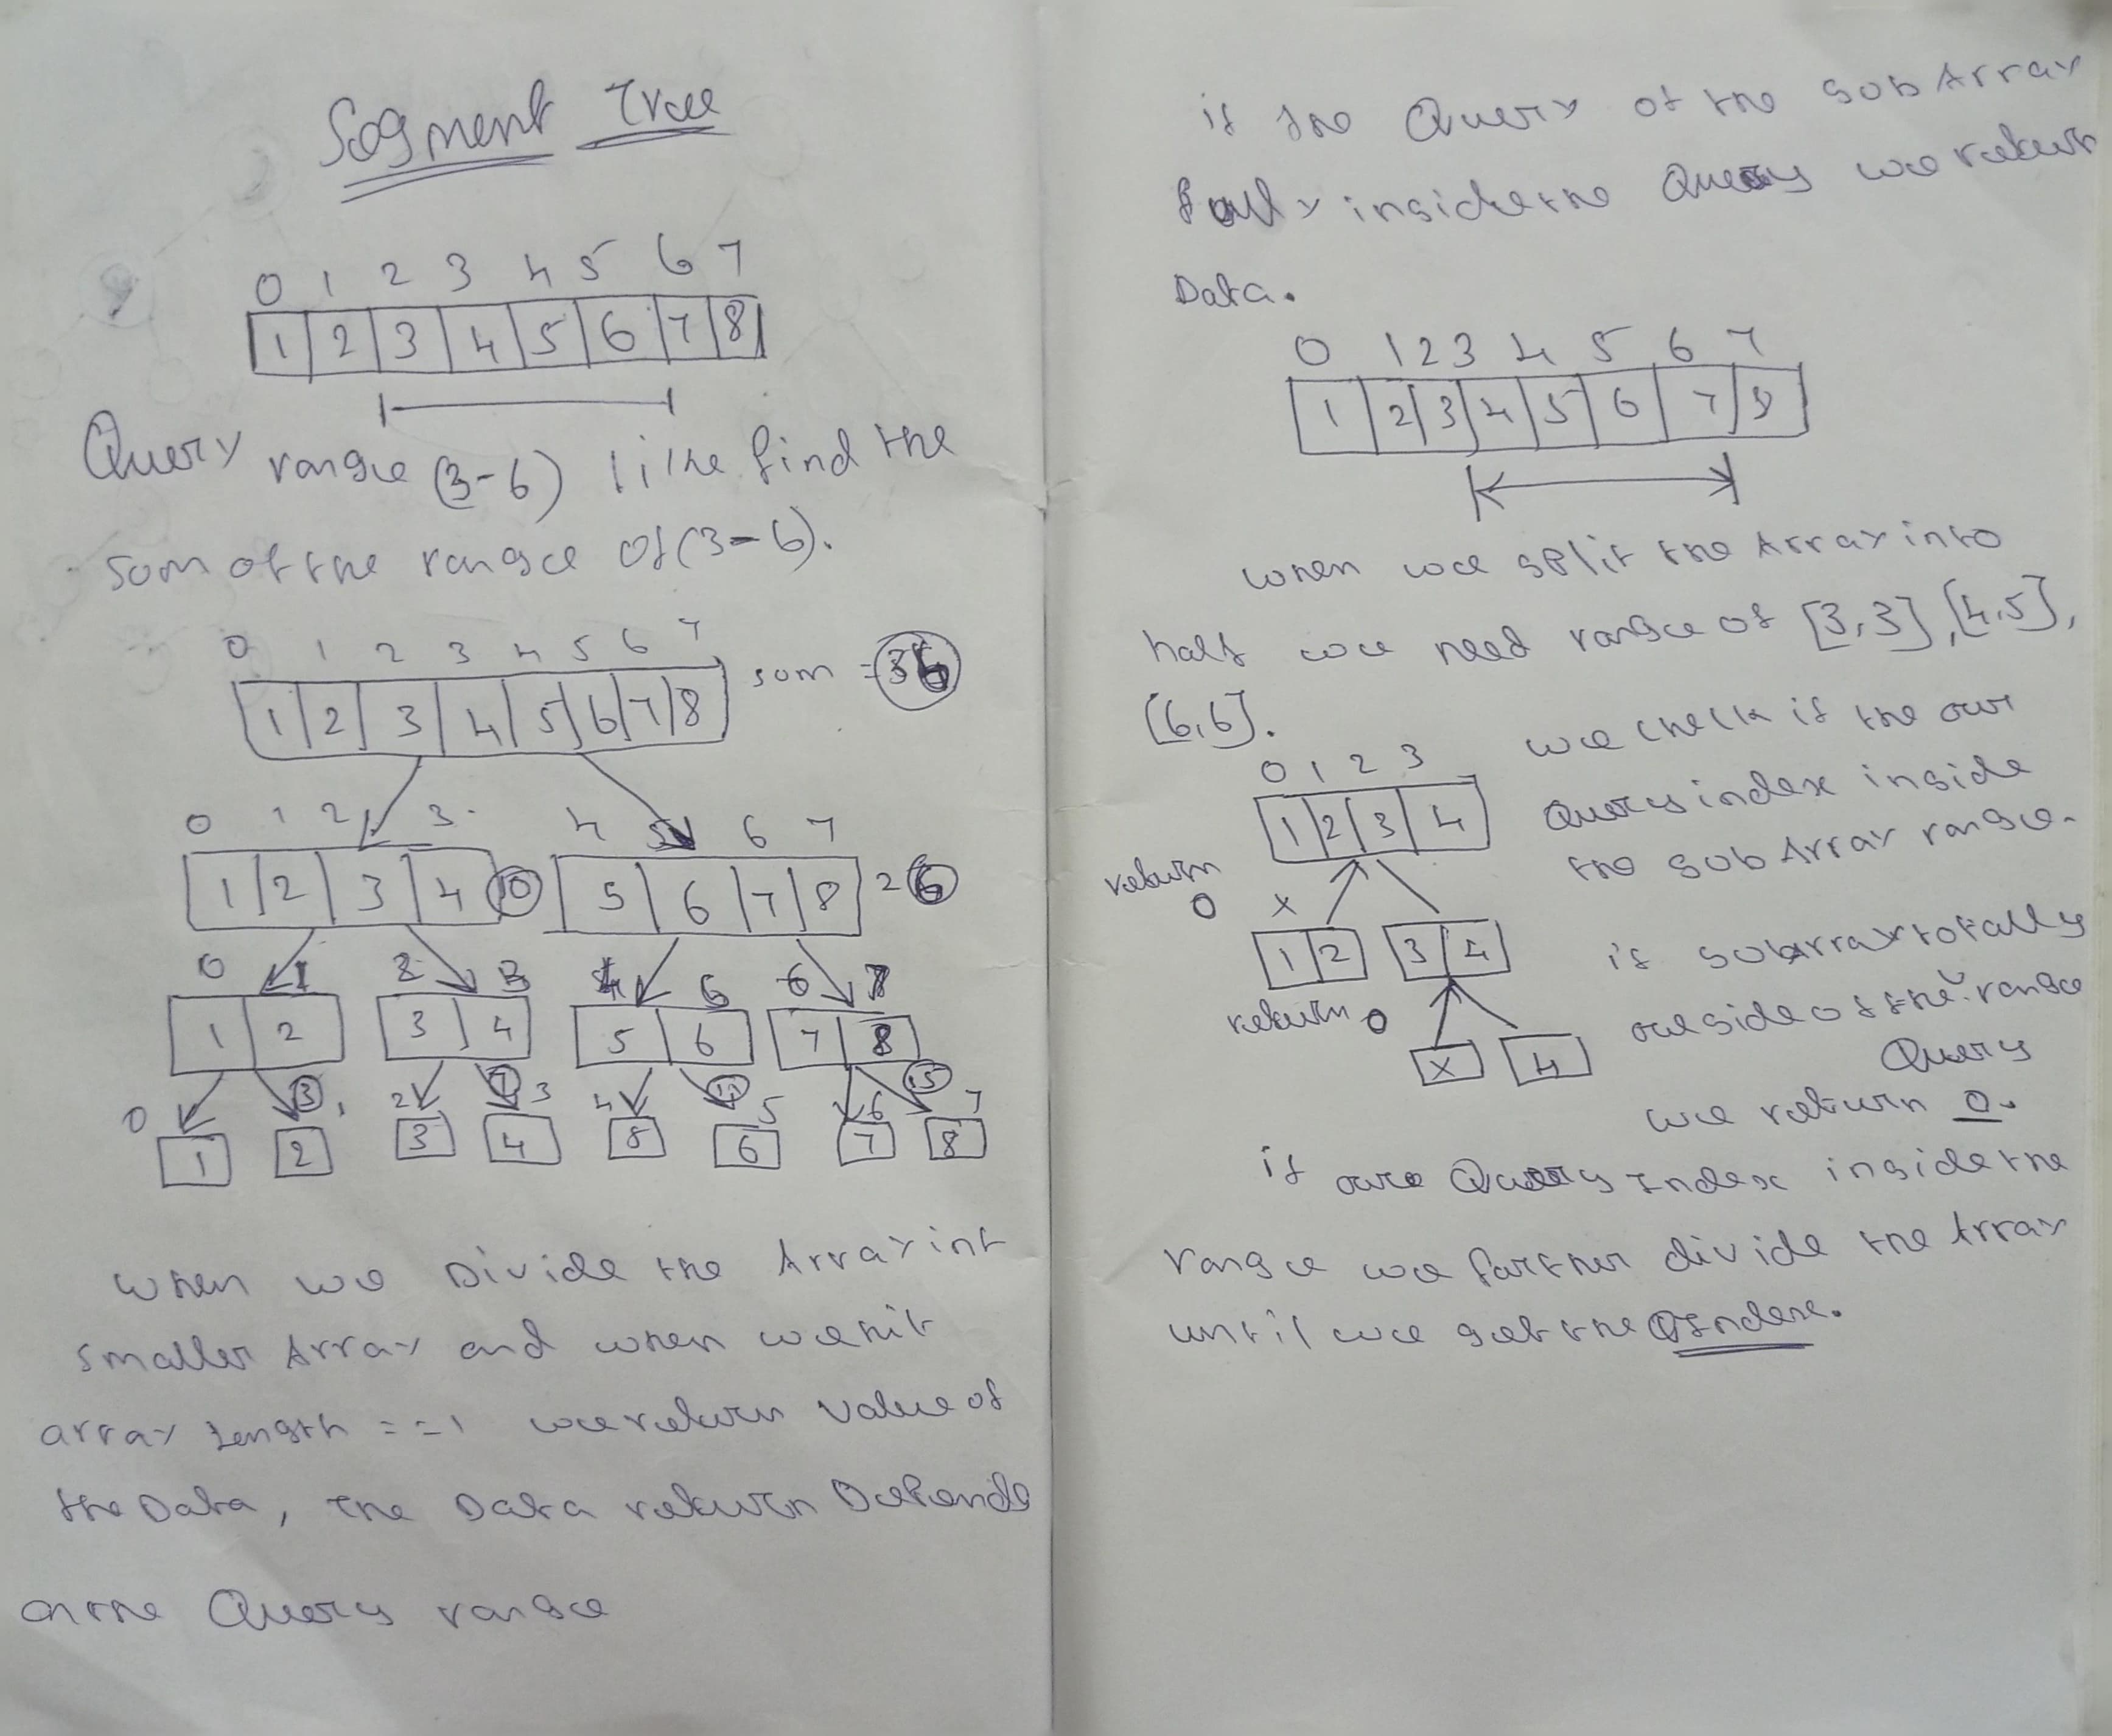 Segment Tree
0 1 2 3 4 5 6 7
1 2 3 4 5 6 7 8
Query range (3-6) like find the
som of the range of (3-6).
0 1 2 3 4 5 6 7
1 2 3 4 5 6 7 8 som = 36
0 1 2 3 4 5 6 7
1 2 3 4 10 5 6 7 8 26
0 1 2 3 4 5 6 7
1 2 3 4 5 6 7 8
3 7 11 15
0 1 2 3 4 5 6 7
1 2 3 4 5 6 7 8
when we Divide the Array int
smaller Array and when we hit
array Length == 1 we return value of
the Data, The Data return Depends
on the Query range
if the Query of the sob Array
fully inside the Query we return
Data.
0 1 2 3 4 5 6 7
1 2 3 4 5 6 7 8
when we split the Array into
half we need range of [3,3], [4,5],
[6,6].
we check if the our
0 1 2 3
Query index inside
1 2 3 4
the sob Array range.
return
0 x
1 2 3 4
if sobarray totally
return 0
outside of the range
Query
x 4
we return 0.
if our Query Index inside the
range we farther divide the Array
until we get the QIndex.